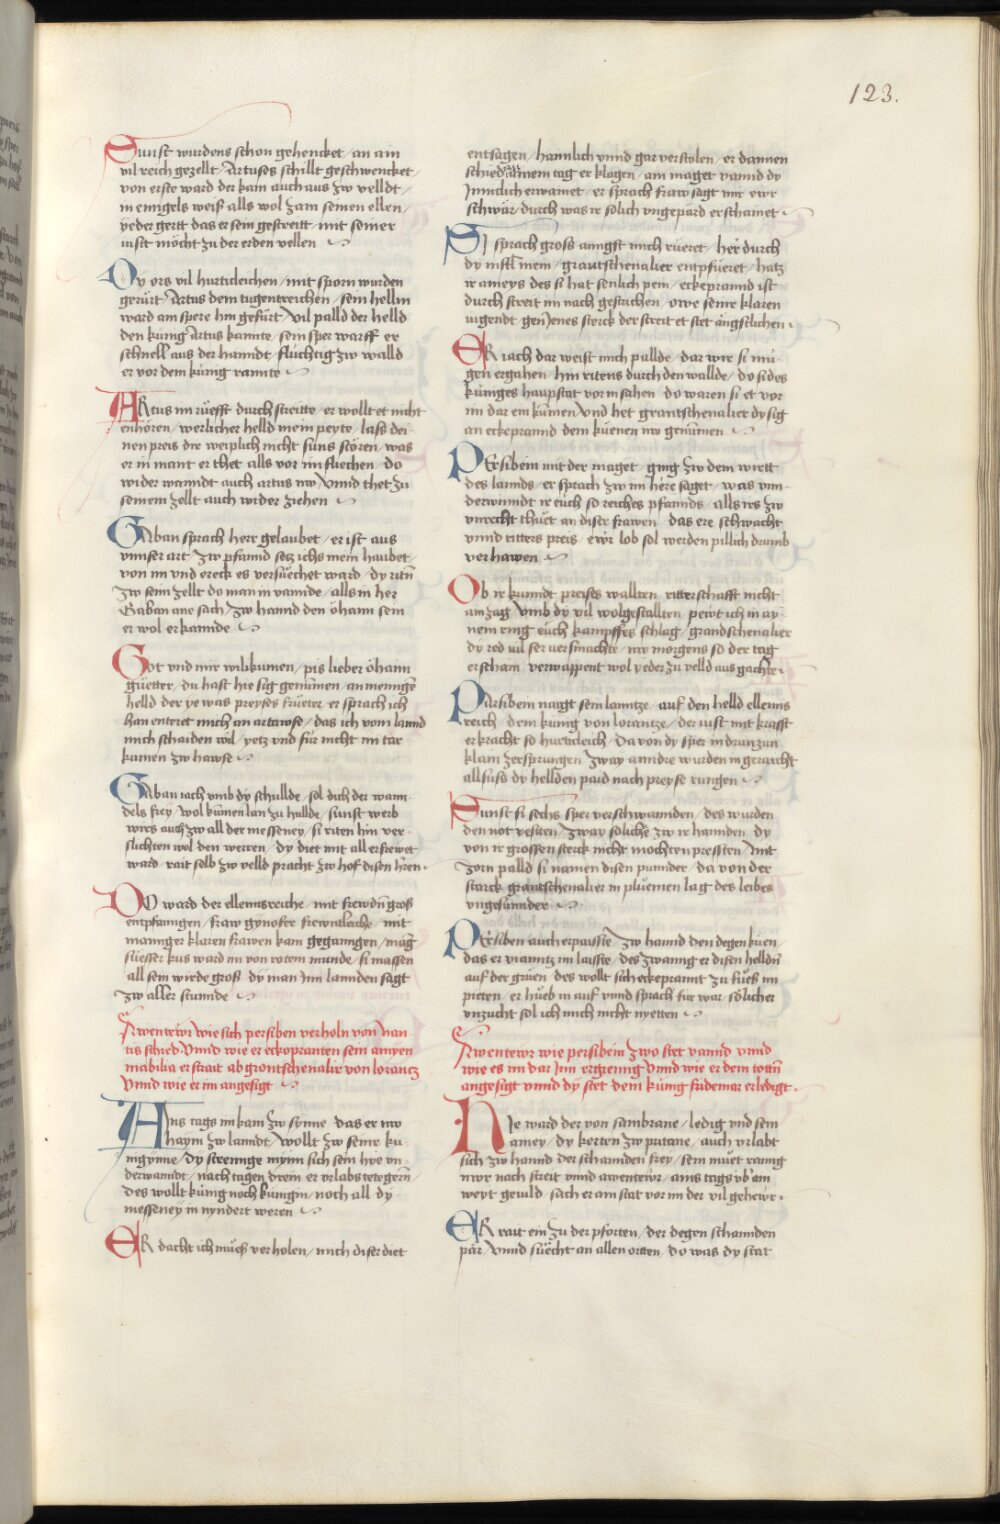 123.
Sunst wurdens schon gehencket / an ain
vil reich gezellt / Artuses schillt geschwencket /
von erste ward der kam auch aus zw velldt /
in enngels weis alls wol zam seinen ellen /
yeder gertt das er sein gestreitt / mit seiner
iusst möcht zu der erden vellen
Dy ors vil hurtticleichen / mit sporn wurden
gerürt / Artus dem tugentreichen / sein hellm
ward am spere hin gefürt / Vil palld der helld
den künig Artus kannte / sein sper warff er
schnell aus der hanndt / flüchtig zw walld
er vor dem künig rannte
ARtus im rüefft durch streitte / er wollt et nicht
enhören / werlicher helld mein peyte / lass dei
nen preis dir weiplich nicht suns stören / was
er in mant er thet alls vor im fliechen / do
wider wanndt auch artus nw / Vnnd thet zu
seinem zellt auch wider ziehen
Gaban sprach herr gelaubet / er ist aus
vnnser art / Zw pfannd setz ichs mein haubet /
von im vnd ereck es versüechet ward / dy ritn
zw seim zellt do man in vannde / alls in her
Gaban ane sach / Zw hannd den öhann sein
er wol erkannde
Got vnd mir wilikumen / pis lieber öhann
güetter / du hast hie sig genumen / an menigem
helld der ye was preyses früeter / er sprach ich
han enteret mich an artawse / das ich vom lannd
mich schaiden wil / yetz vnd für nicht im tar
kumen zw hawse
Gaban iach vmb dy schullde / sol dich der wann
dels frey / wol kumen lan zu hullde / sunst werb
wirs auch zw all der messeney / si riten hin ver
slichten wol den werren / dy diet mit all erfrewet
ward / rait selb zw velld pracht zw hof disen h'ren.
DO ward der ellennsreiche / mit frewdn gross
entpfanngen / fraw gynofer frewntleiche / mit
manniger klaren frawen kam geganngen / mäg
süesser kus ward im von rotem munde / si massen
all sein wirde gross / dy man Inn lannden sagt
zw aller stunnde
Awentewr wie sich persiben verholn von nan
tis schied Vnnd wie er eckopranten sein amyen
mabilia er strait ab grontschenalir von lorantz
Vnnd wie er im angesigt
Ains tags im kam zw synne / das er nw
haym zw lanndt / wollt zw seine ku
niginne / dy strennge mynn sich sein hie vn
derwanndt / nach tagen drein er vrlabs tet gern /
des wollt künig noch künigin / noch all dy
messeney in nyndert weren
ER dacht ich müess verholen / mich diser diet
entsagen / hannlich vnnd gar verstolen / er dannen
schied / ainem tag er klagen / ain maget vannd dy
Innicklich erwainet / er sprach fraw sagt mir ewr
schwär / durch was ir solich vngepärd erschainet
SI sprach gross anngst mich rueret / her durch
dy insll mein / grautschenalier entpfüeret / hatz
ir ameys des si hat senlich pein / eckeprannd ist
durch streit im nach gestrichen / owe seiner klaren
iugendt / gen Jenes sterck der streit et stet ängstlichen.
ER iach dar weist mich pallde / dar wir si mü
gen ergahen / hin ritens durch den wallde / do si des
küniges haupstat vor in sahen / do waren si et vor
im dar ein kumen / Vnd het grantschenalier dy sig
an eckeprannd dem küenen nw genumen
PErsibein mit der maget / ging zw dem wirtt
des lannds / er sprach zw im herre saget / was vnn
derwunndt ir euch so reiches pfannds / alls irs zw
vnrecht thuet an diser frawen / das ere schwacht
vnnd ritters preis / ewr lob sol werden pillich drumb
verhawen
Ob ir kunndt preises wallten / ritterschafft nicht
ain zag / Vmb dy vil wolgestallten / pewt ich in ay
nem ring euch kampffes schlag / grandschenalier
dy red vil ser versmachte / nw morgens so der tag
erscham / verwappent wol yeder zu velld aus gachte
PArsibein naigt sein lanntze / auf den helld ellenns
reich / dem künig von lorantze / der iust mit krafft
er kracht so hurticleich / da von dy sper in drunzun
klain zersprungen / zway anndre wurden in geraicht
allsuss dy hellden paid nach preyse rungen
Sunst si sechs sper verschwannden / des wurden
den not vesiten / zwar soliche zw ir hannden / dy
von ir grossen sterck nicht mochten pressten / mit
zorn palld si namen disen punnder / da von der
starck grautschenalier in plüemen lag des leibes
vngesunnder
PErsiben auch erpaisste / zw hannd den degen küen /
das er vianntz im laisste / des zwanng er disen helldn
auf der grüen / des wollt sich eckeprannt zu fües im
pieten / er hueb in auf vnnd sprach fur war / sölicher
vnzucht sol ich mich nicht nyetten
Awentewr wie persibein zwo stet vannd vnnd
wie es im dar Inn erginng Vnnd wie er dem tottn
angesigt vnnd dy stet dem küng fridemar erledigt.
NIe ward der von sambrane / ledig vnd sein
amey / dy kerten zw putane / auch vrlabt
sich zw hannd der schannden frey / sein müet ranng
nwr nach streit vnnd awentewr / ains tags vb' ain
weyt gevild / sach er ain stat vor im der vil gehewr.
ER rait ein zu der pforten / der degen schannden
par / Vnnd süecht an allen ortten / do was dy stat